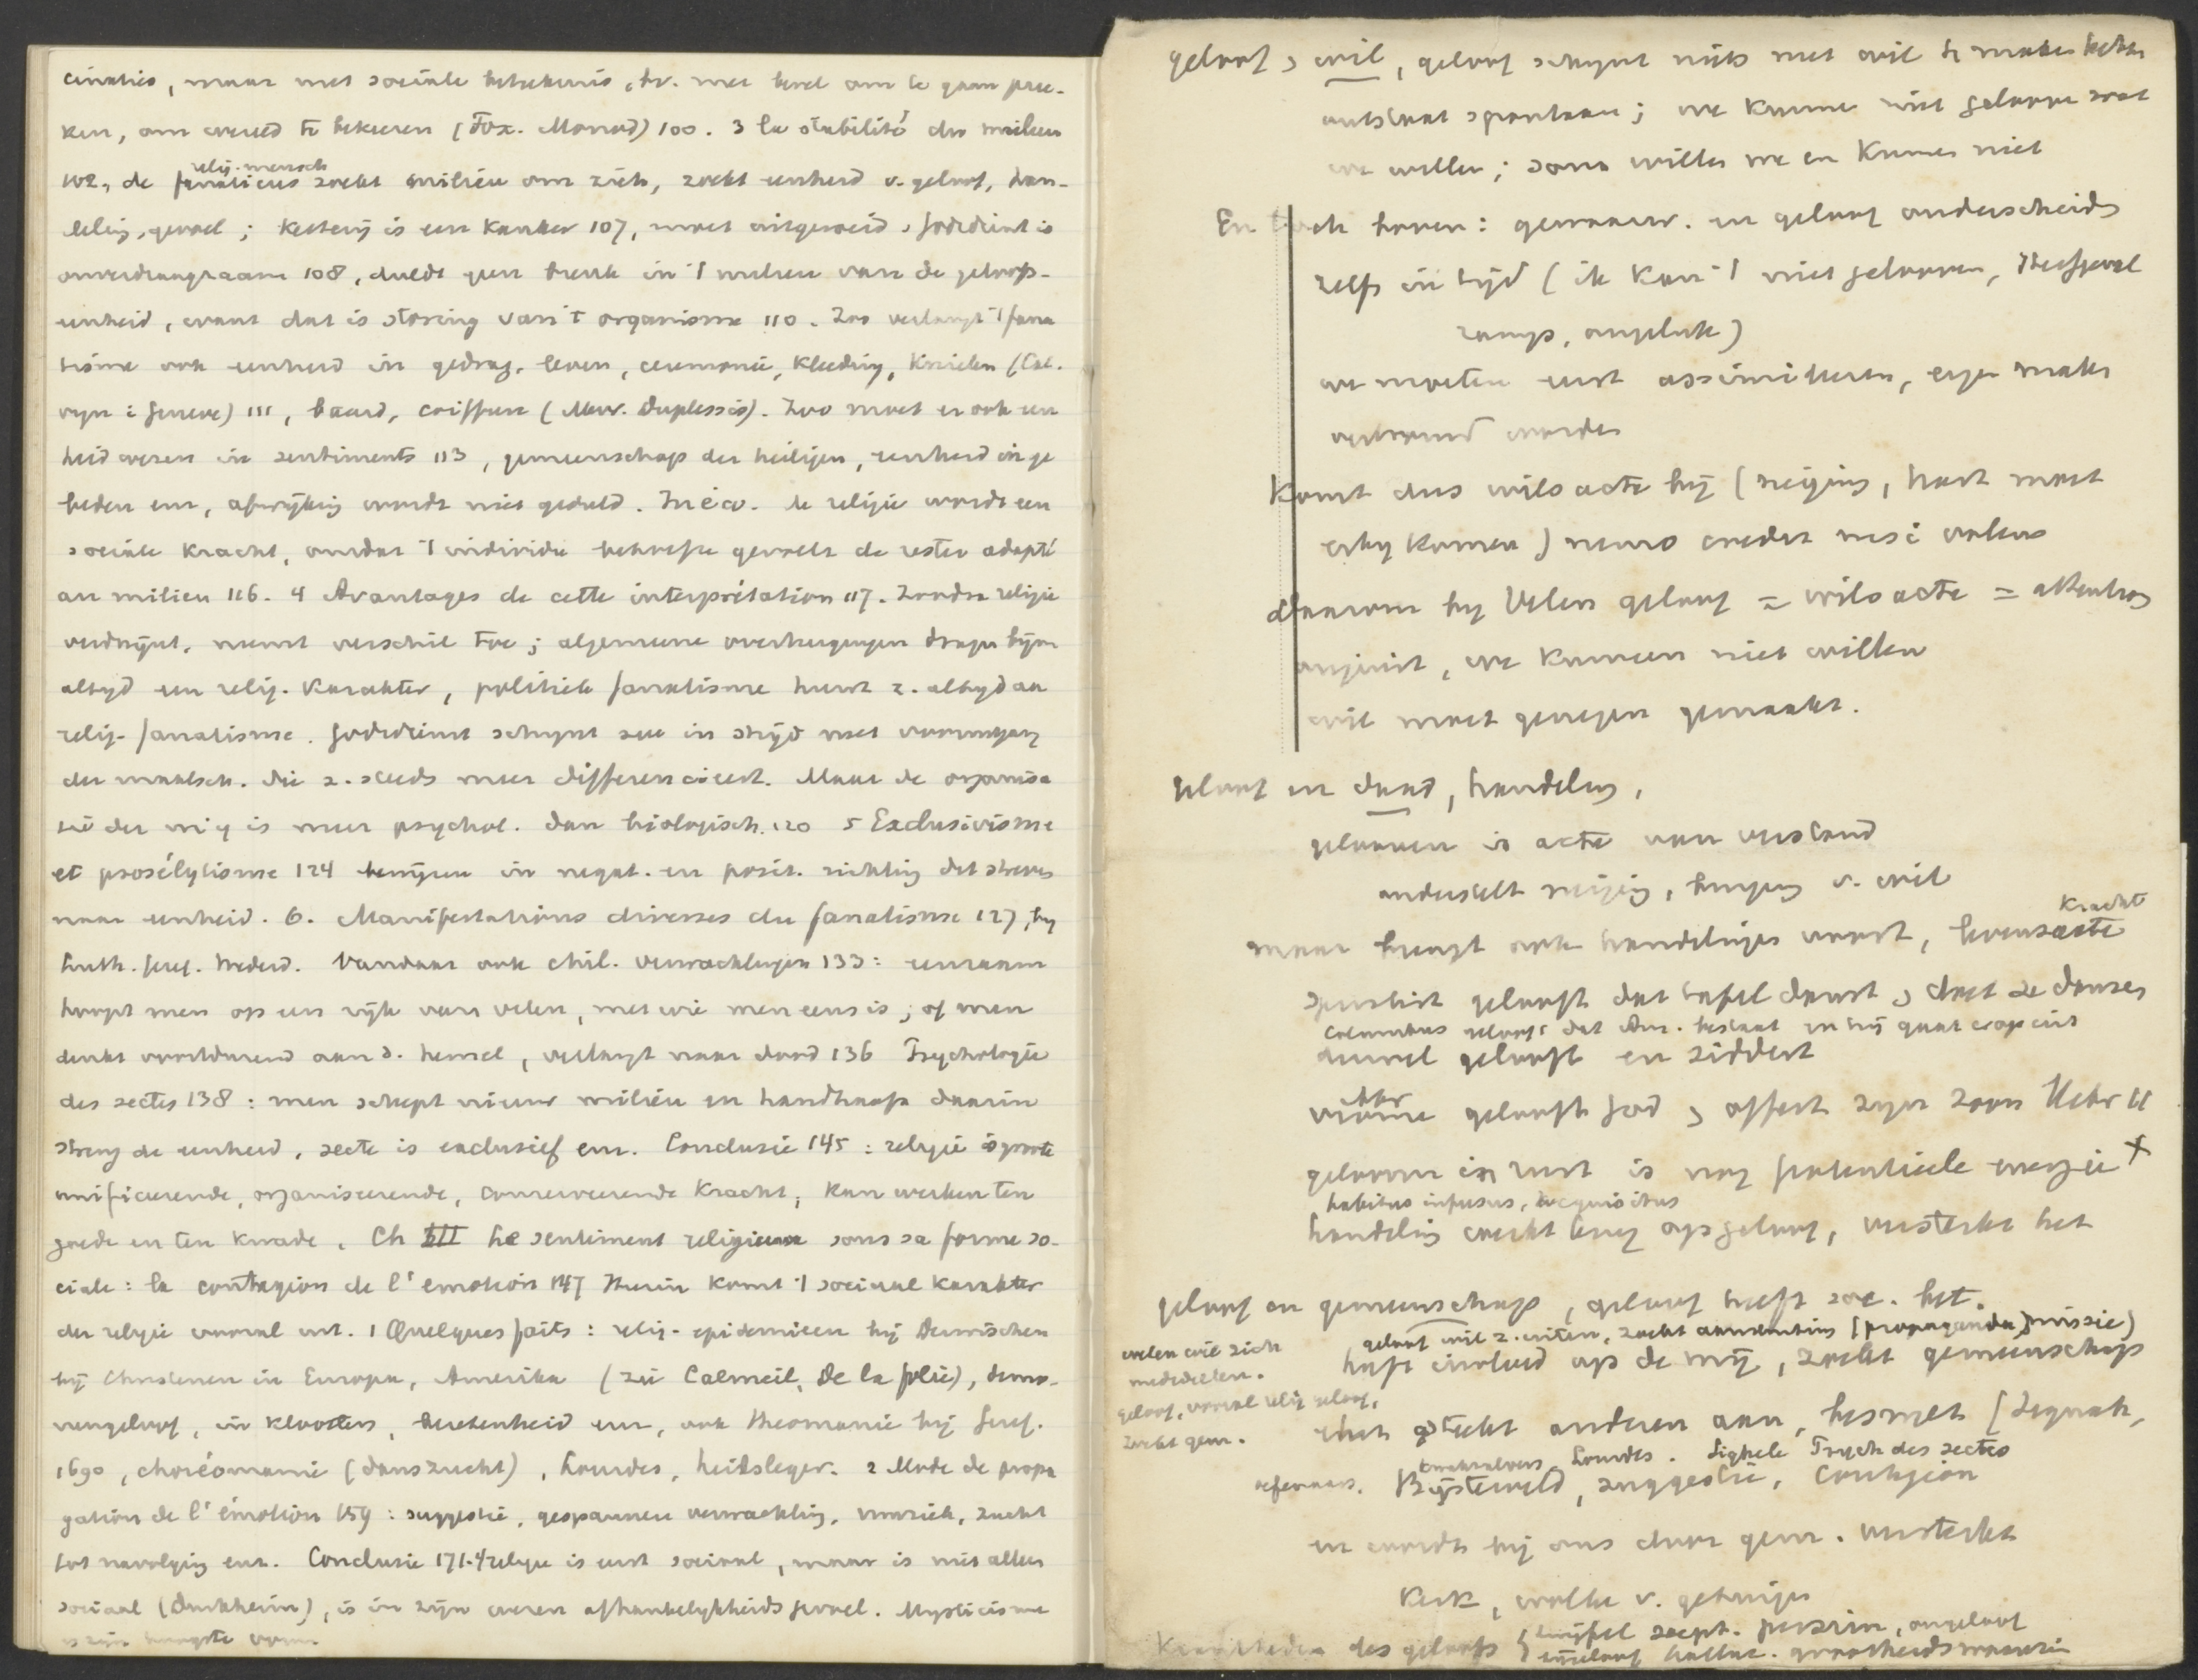 cinaties, maar met sociale betekenis, bv. met bevel om te gaan pree-
ken, om wereld te bekeeren (Fox. Monod) 100. 3 la stabilité du milieu
102, de fanaticus zoekt milieu om zich, zoekt eenheid v. geloof, han-
relig. mensch
deling, gevoel; ketterij is een kanker 107, moet uitgeroeid, godsdienst is
onverdraagzaam 108, duldt geen breuk in 't milieu van de geloofs-
eenheid, want dat is storing van 't organisme 110. Zoo verlangt 't fana
tisme ook eenheid in gedrag, leven, ceremonie, kleeding, knielen (Cal.
vijn: Geneve) 111, baard, coiffure (Mevr. Duplessis). Zoo moet er ook een
heid wezen in sentiments 113, gemeenschap der heiligen, eenheid in ge
beden enz, afwijking wordt niet geduld. In é.w. de religie wordt een
sociale kracht, omdat 't individu behoefte gevoelt de rester adapté
au milieu 116. 4 Avantages de cette interprétation 117. Zoodra religie
verdwijnt, neemt verschil toe; algemeene overtuigingen dragen bijna
altijd een relig. karakter, politiek fanatisme leunt z. altijd aan
relig. fanatisme. Godsdienst schijnt dus in strijd met vooruitgang
der maatsch. die z. steeds meer differencieert. Maar de organisa
tie der mij is meer psychol. dan biologisch. 120 5 Exclusivisme
et prosélytisme 124 bewijzen in negat. en posit. richting dat streven
naar eenheid. 6. Manifestations diverses du fanatisme 127, bij
Luth. Geref. Wederd. Vandaar ook chil. verwachtingen 133: eenzaam
hoopt men op een rijk van velen, met wie men eens is; of men
denkt voortdurend aan d. hemel, verlangt naar dood 136 Psychologie
des sectes 138: men schept nieuw milieu en handhaaft daarin
streng de eenheid, secte is exclusief enz. Conclusie 145: religie is groote
unificeerende, organiseerende, conserveerende kracht, kan werken ten
goede en ten kwade. Ch III Le sentiment religieux sous sa forme so-
ciale: la contagion de l'emotion 147 Hierin komt 't sociaal karakter
der religie vooral uit. 1 Quelques faits: relig. epidemieen bij Derwischen
bij Christenen in Europa, Amerika (zie Calmeil, De la folie), demo-
nengeloof, in kloosters, bezetenheid enz, ook theomanie bij Geref.
1690, choréomanie (danszucht), Lourdes, heilsleger. 2 Mode de propa
gation de l'émotion 159: suggestie, gespannen verwachting, muziek, zucht
tot navolging enz. Conclusie 171. 't religie is eerst sociaal, maar is niet alleen
sociaal (Durkheim), is in zijn wezen afhankelijkheidsgevoel. Mysticisme
is zijn hoogste vorm
geloof & wil, geloof schijnt niets met wil te maken hebben
ontstaat spontaan; we kunnen niet gelooven wat
we willen; soms willen we en kunnen niet
En toch boven: gewaarw. en geloof onderscheiden
zelfs in tijd (ik kan 't niet gelooven, sterfgeval
ramp, ongeluk)
we moeten eerst assimileeren, eigen maken
vertrouwd worden
Komt dus wilsacte bij (neiging, hart moet
erbij komen) nemo credit nisi volens
daarom bij velen geloof = wilsacte = attention
onjuist, we kunnen niet willen
wil moet genegen gemaakt.
geloof en daad, handeling,
gelooven is acte van verstand
onderstelt neiging, buiging v. wil
maar brengt ook handelingen voort, levensacte
kracht
spiritist gelooft dat tafel danst, & doet ze dansen
Columbus gelooft dat Am. bestaat en hij gaat erop uit
duivel gelooft en siddert
vrome gelooft God & offert zijn zoon Hebr 11
Abr
gelooven in rust is nog potentieele energie +
habitus infusus, acquisitus
handeling werkt terug op geloof, versterkt het
geloof en gemeenschap, geloof heeft soc. bet.
geloof wil z. uiten, zoekt aansluiting (propaganda, missie)
heeft invloed op de mij, zoekt gemeenschap
velen wil zich
mededeelen.
geloof, vooral relig geloof,
zoekt gem.
steekt anderen aan, besmet
Lourdes. Sighele Psych des sectes
Bijsterveld, suggestie, contagion
en wordt bij ons door gem. versterkt
Kerk, wolke v. getuigen
des geloofs { twijfel scept. ongeloof
halluc. grootheidswaanzin